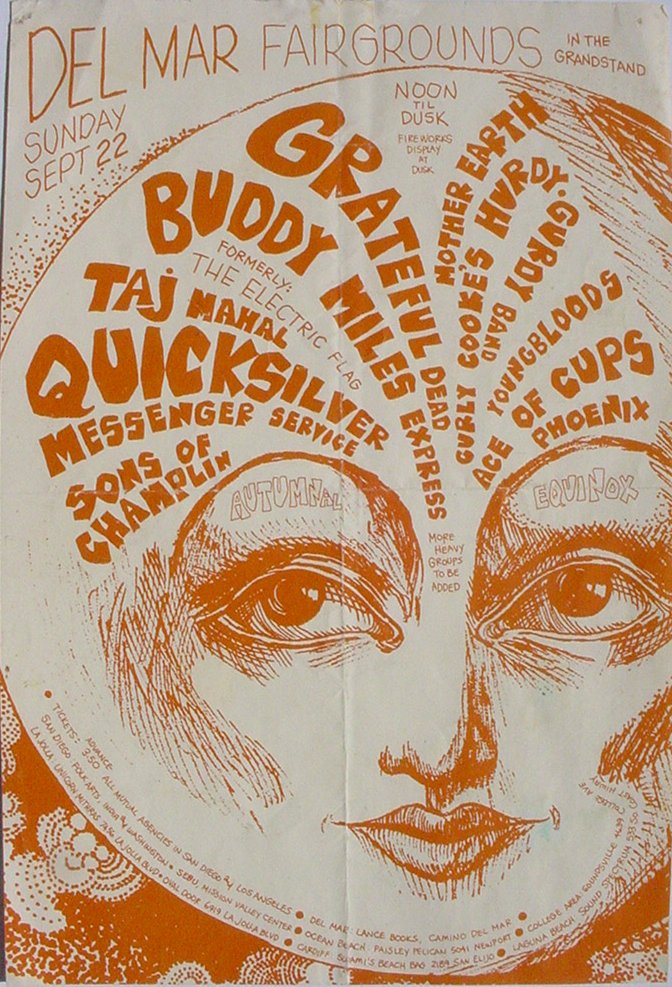 DEL MAR FAIRGROUNDS IN THE GRANDSTAND
SUNDAY
SEPT 22
NOON
TIL
DUSK
FIREWORKS
DISPLAY
AT
DUSK
SONS OF
CHAMPLIN
QUICKSILVER
MESSENGER SERVICE
TAJ MAHAL
BUDDY MILES EXPRESS
FORMERLY:
THE ELECTRIC FLAG
GRATEFUL DEAD
MOTHER EARTH
CURLY COOKE'S HURDY-GURDY BAND
YOUNGBLOODS
ACE OF CUPS
PHOENIX
AUTUMNAL
EQUINOX
MORE
HEAVY
GROUPS
TO BE
ADDED
• TICKETS: ADVANCE 3.50 ALL MUTUAL AGENCIES IN SAN DIEGO & LOS ANGELES •
SAN DIEGO: FOLK ARTS INDIA & WASHINGTON • SEBU, MISSION VALLEY CENTER •
LA JOLLA: UNICORN MITHRAS 7456 LA JOLLA BLVD • OVAL DOOR 6919 LA JOLLA BLVD •
DEL MAR: LANCE BOOKS, CAMINO DEL MAR •
OCEAN BEACH PAISLEY PELICAN 5041 NEWPORT •
CARDIFF SWAMI'S BEACH BAG 2189 SAN ELIJO •
COLLEGE AREA: COLLEGE AVE
LAGUNA BEACH SOUND SPECTRUM COAST HIWAY